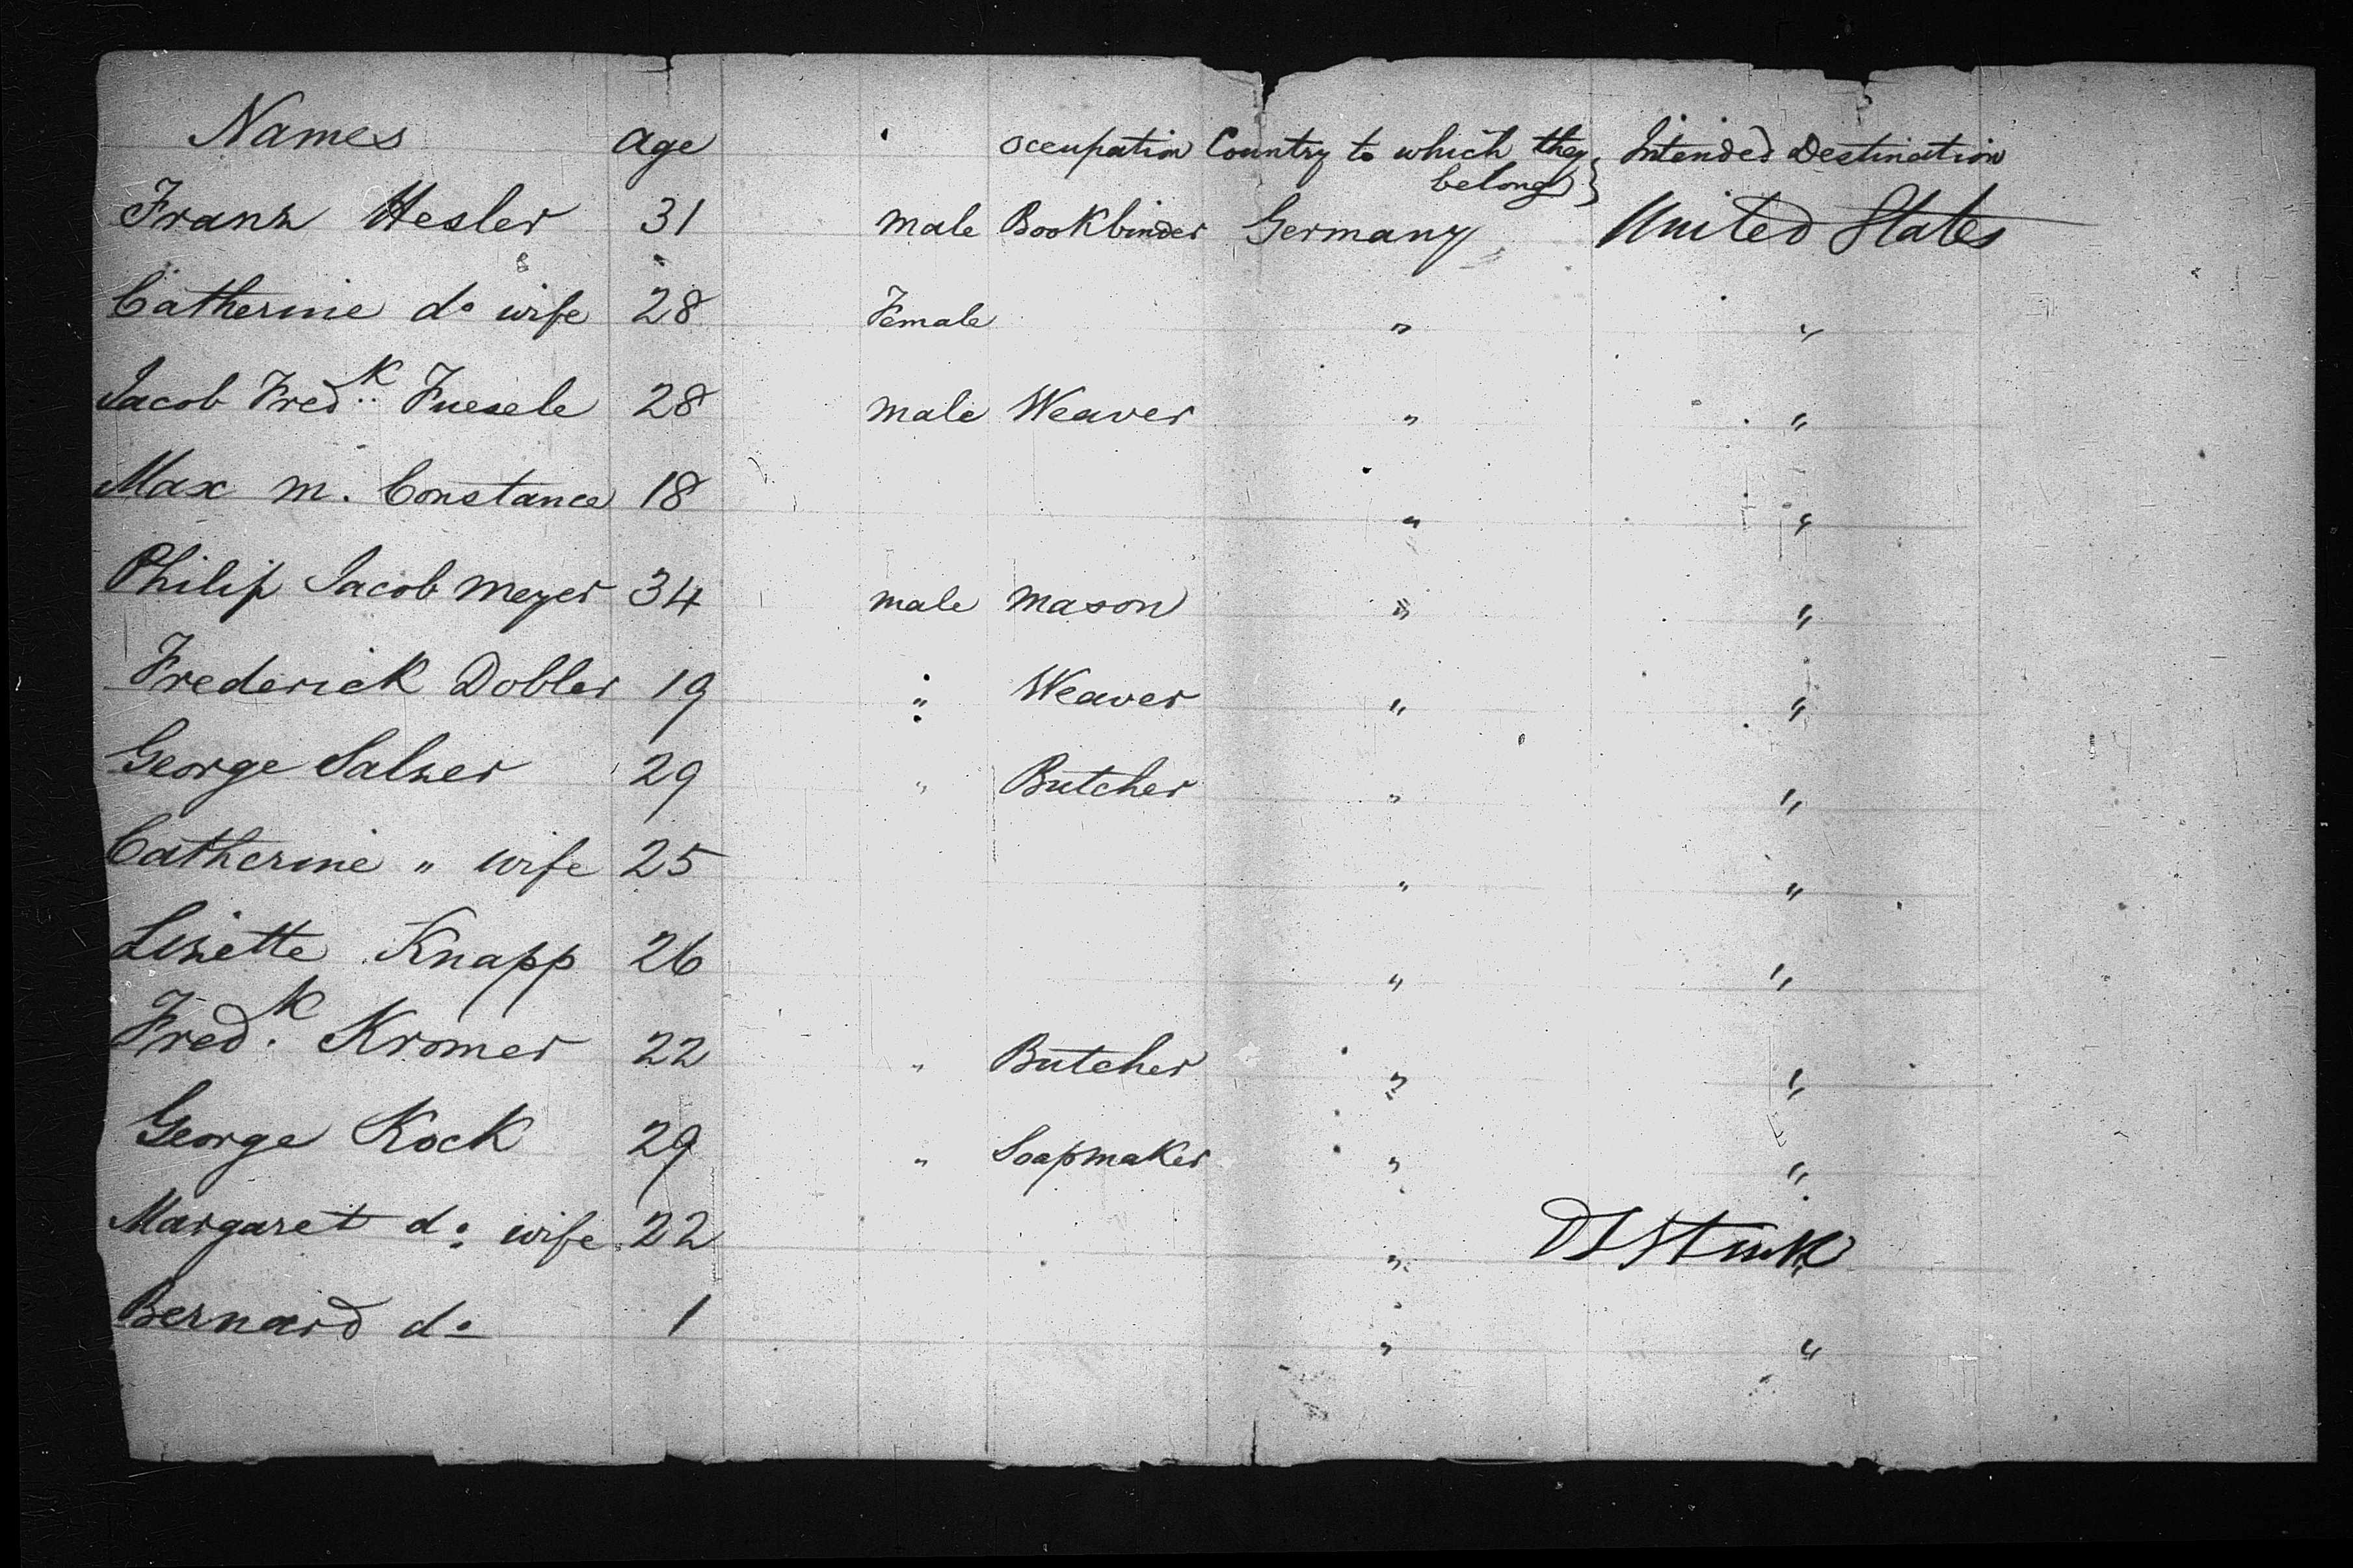 Names age occupation Country to which they belong } Intended Destination
Franz Hesler 31 male Bookbinder Germany United States
Catherine do wife 28 Female " "
Jacob Fredk Fuesele 28 male Weaver " "
Max m. Constance 18 " "
Philip Jacob meyer 34 male mason " "
Frederick Dobler 19 " Weaver " "
George Salzer 29 " Butcher " "
Catherine " wife 25 " "
Lizette Knapp 26 " "
Fredk Kromer 22 " Butcher " "
George Kock 29 " Soapmaker " "
Margaret do wife 22 " "
Bernard do 1 " "